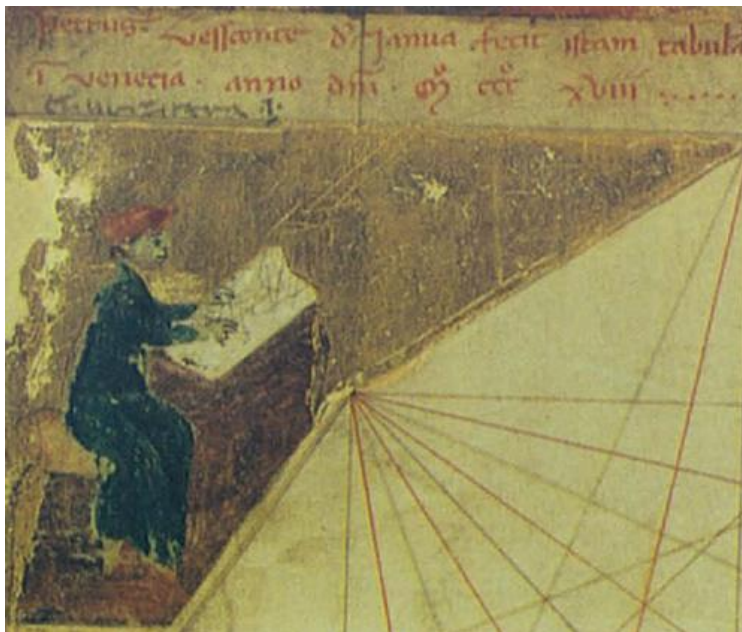 Petrus vessconte d' Janua fecit istam tabula
ī venecia · anno dn̄i · mͦ cccͦ xviii ·····